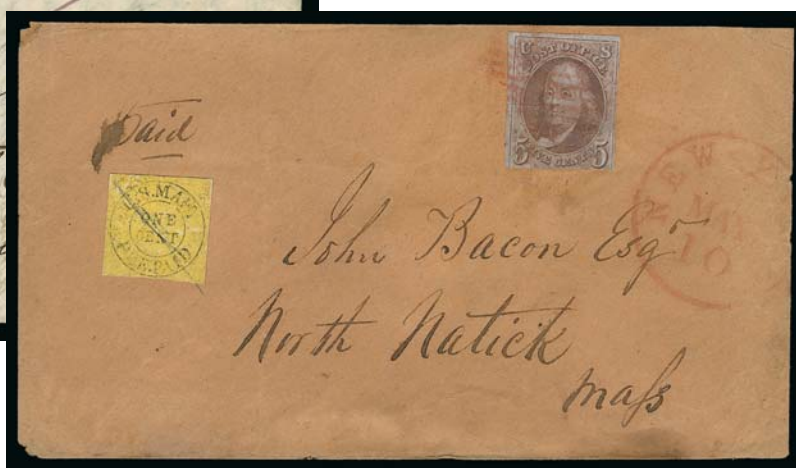 Paid
U S
POST OFFICE
5 FIVE CENTS 5
U.S. MAIL
ONE
CENT
PRE-PAID
NEW Y
MAY
10
John Bacon Esqr
North Natick
Mass